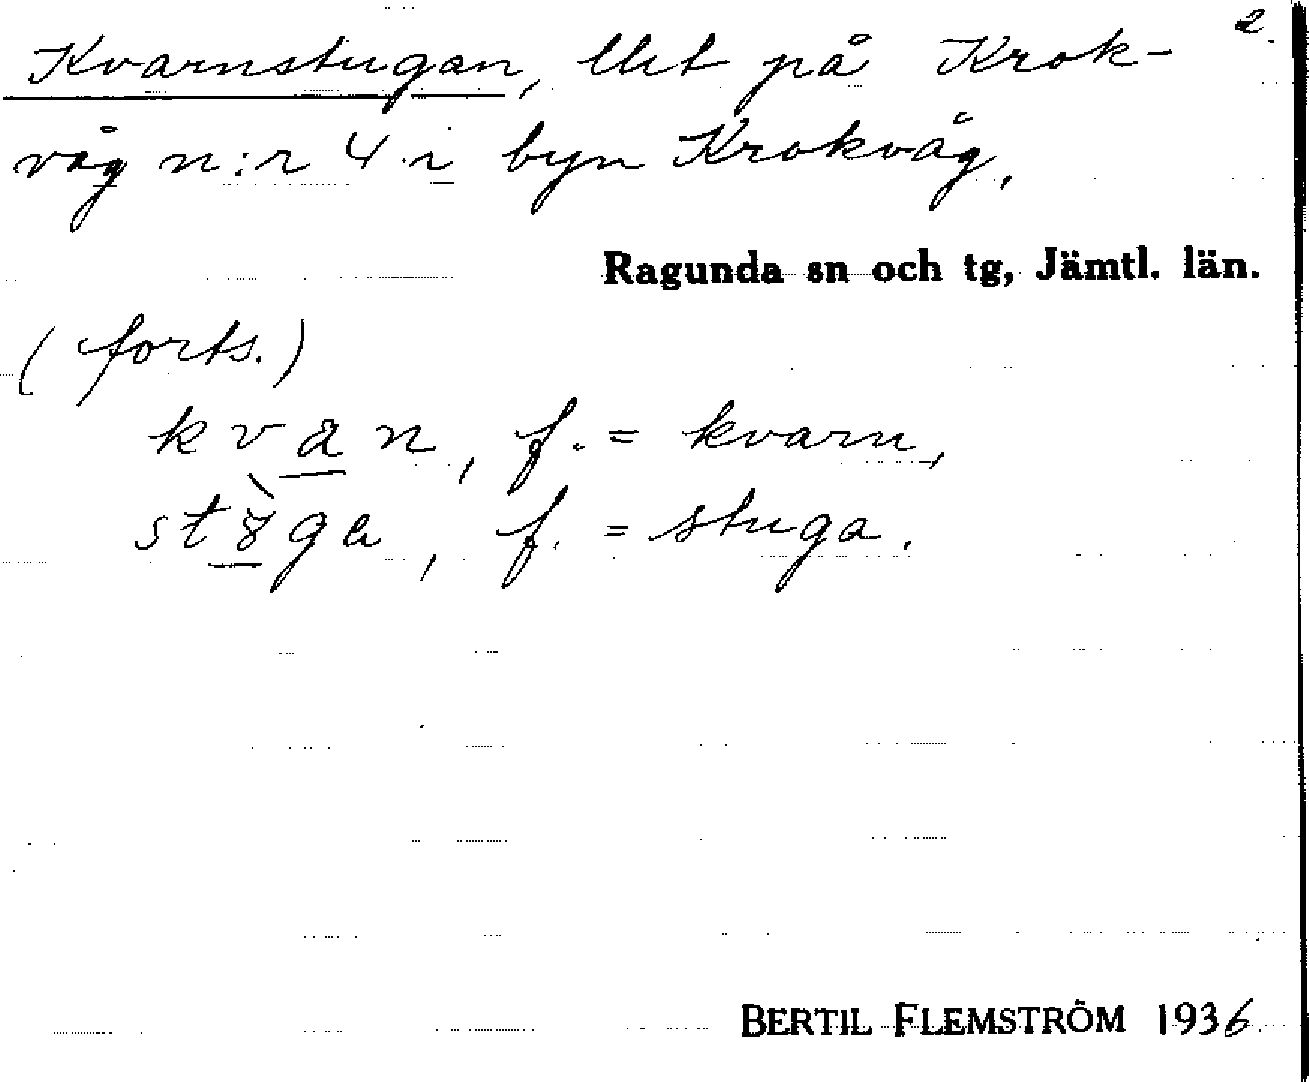 2.
Kvarnstugan, llet på Krok-
våg n:r 4 i byn Krokvåg,
Ragunda sn och tg, Jämtl. län.
(forts.)
kvan, f. = kvarn,
f. = stuga.
BERTIL FLEMSTRÖM 1936.